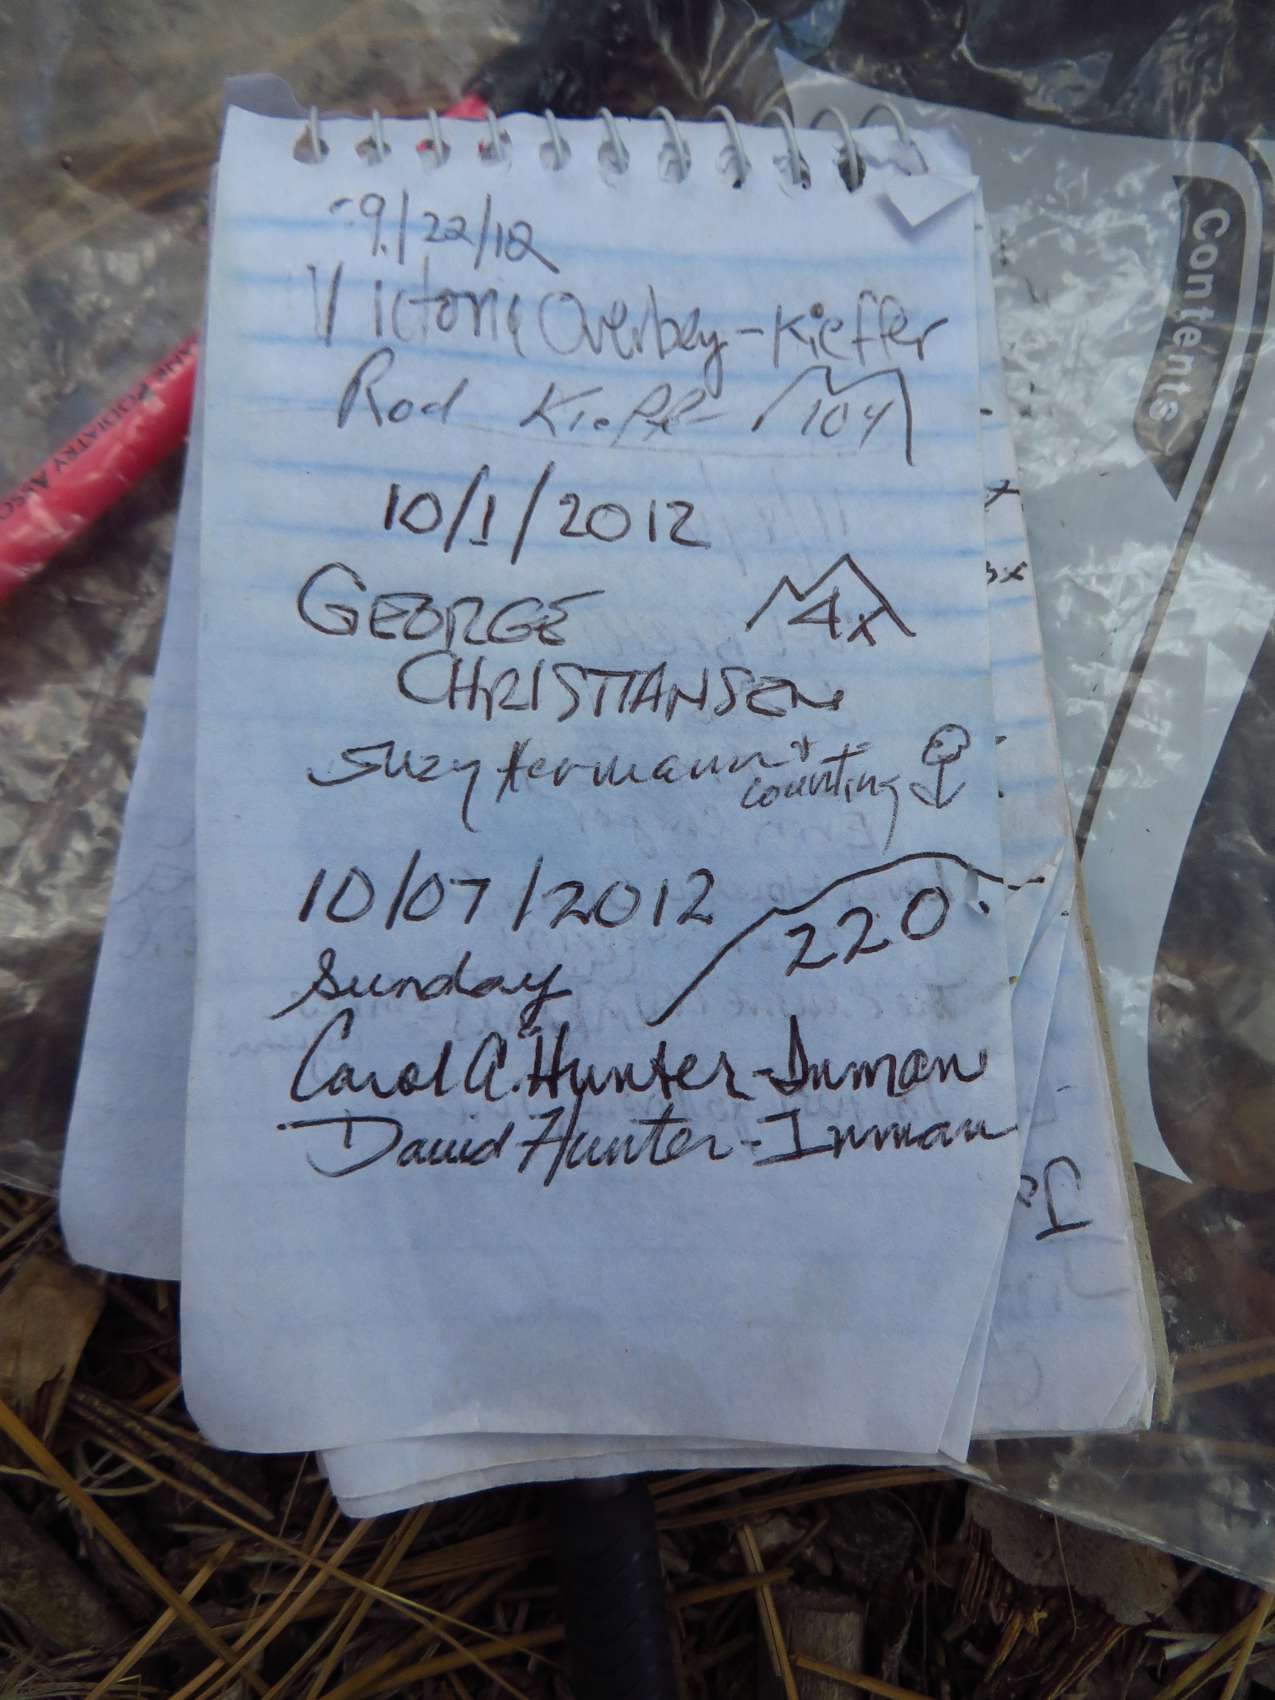 9/22/12
Victoria Overbey-Kieffer
Rod Kieffer 104
10/1/2012
GEORGE 4x
CHRISTIANSEN
Suzy Hermann +
counting
10/07/2012
220.
Sunday
Carol A. Hunter-Inman
David Hunter-Inman
Contents
PODIATRY ASSO